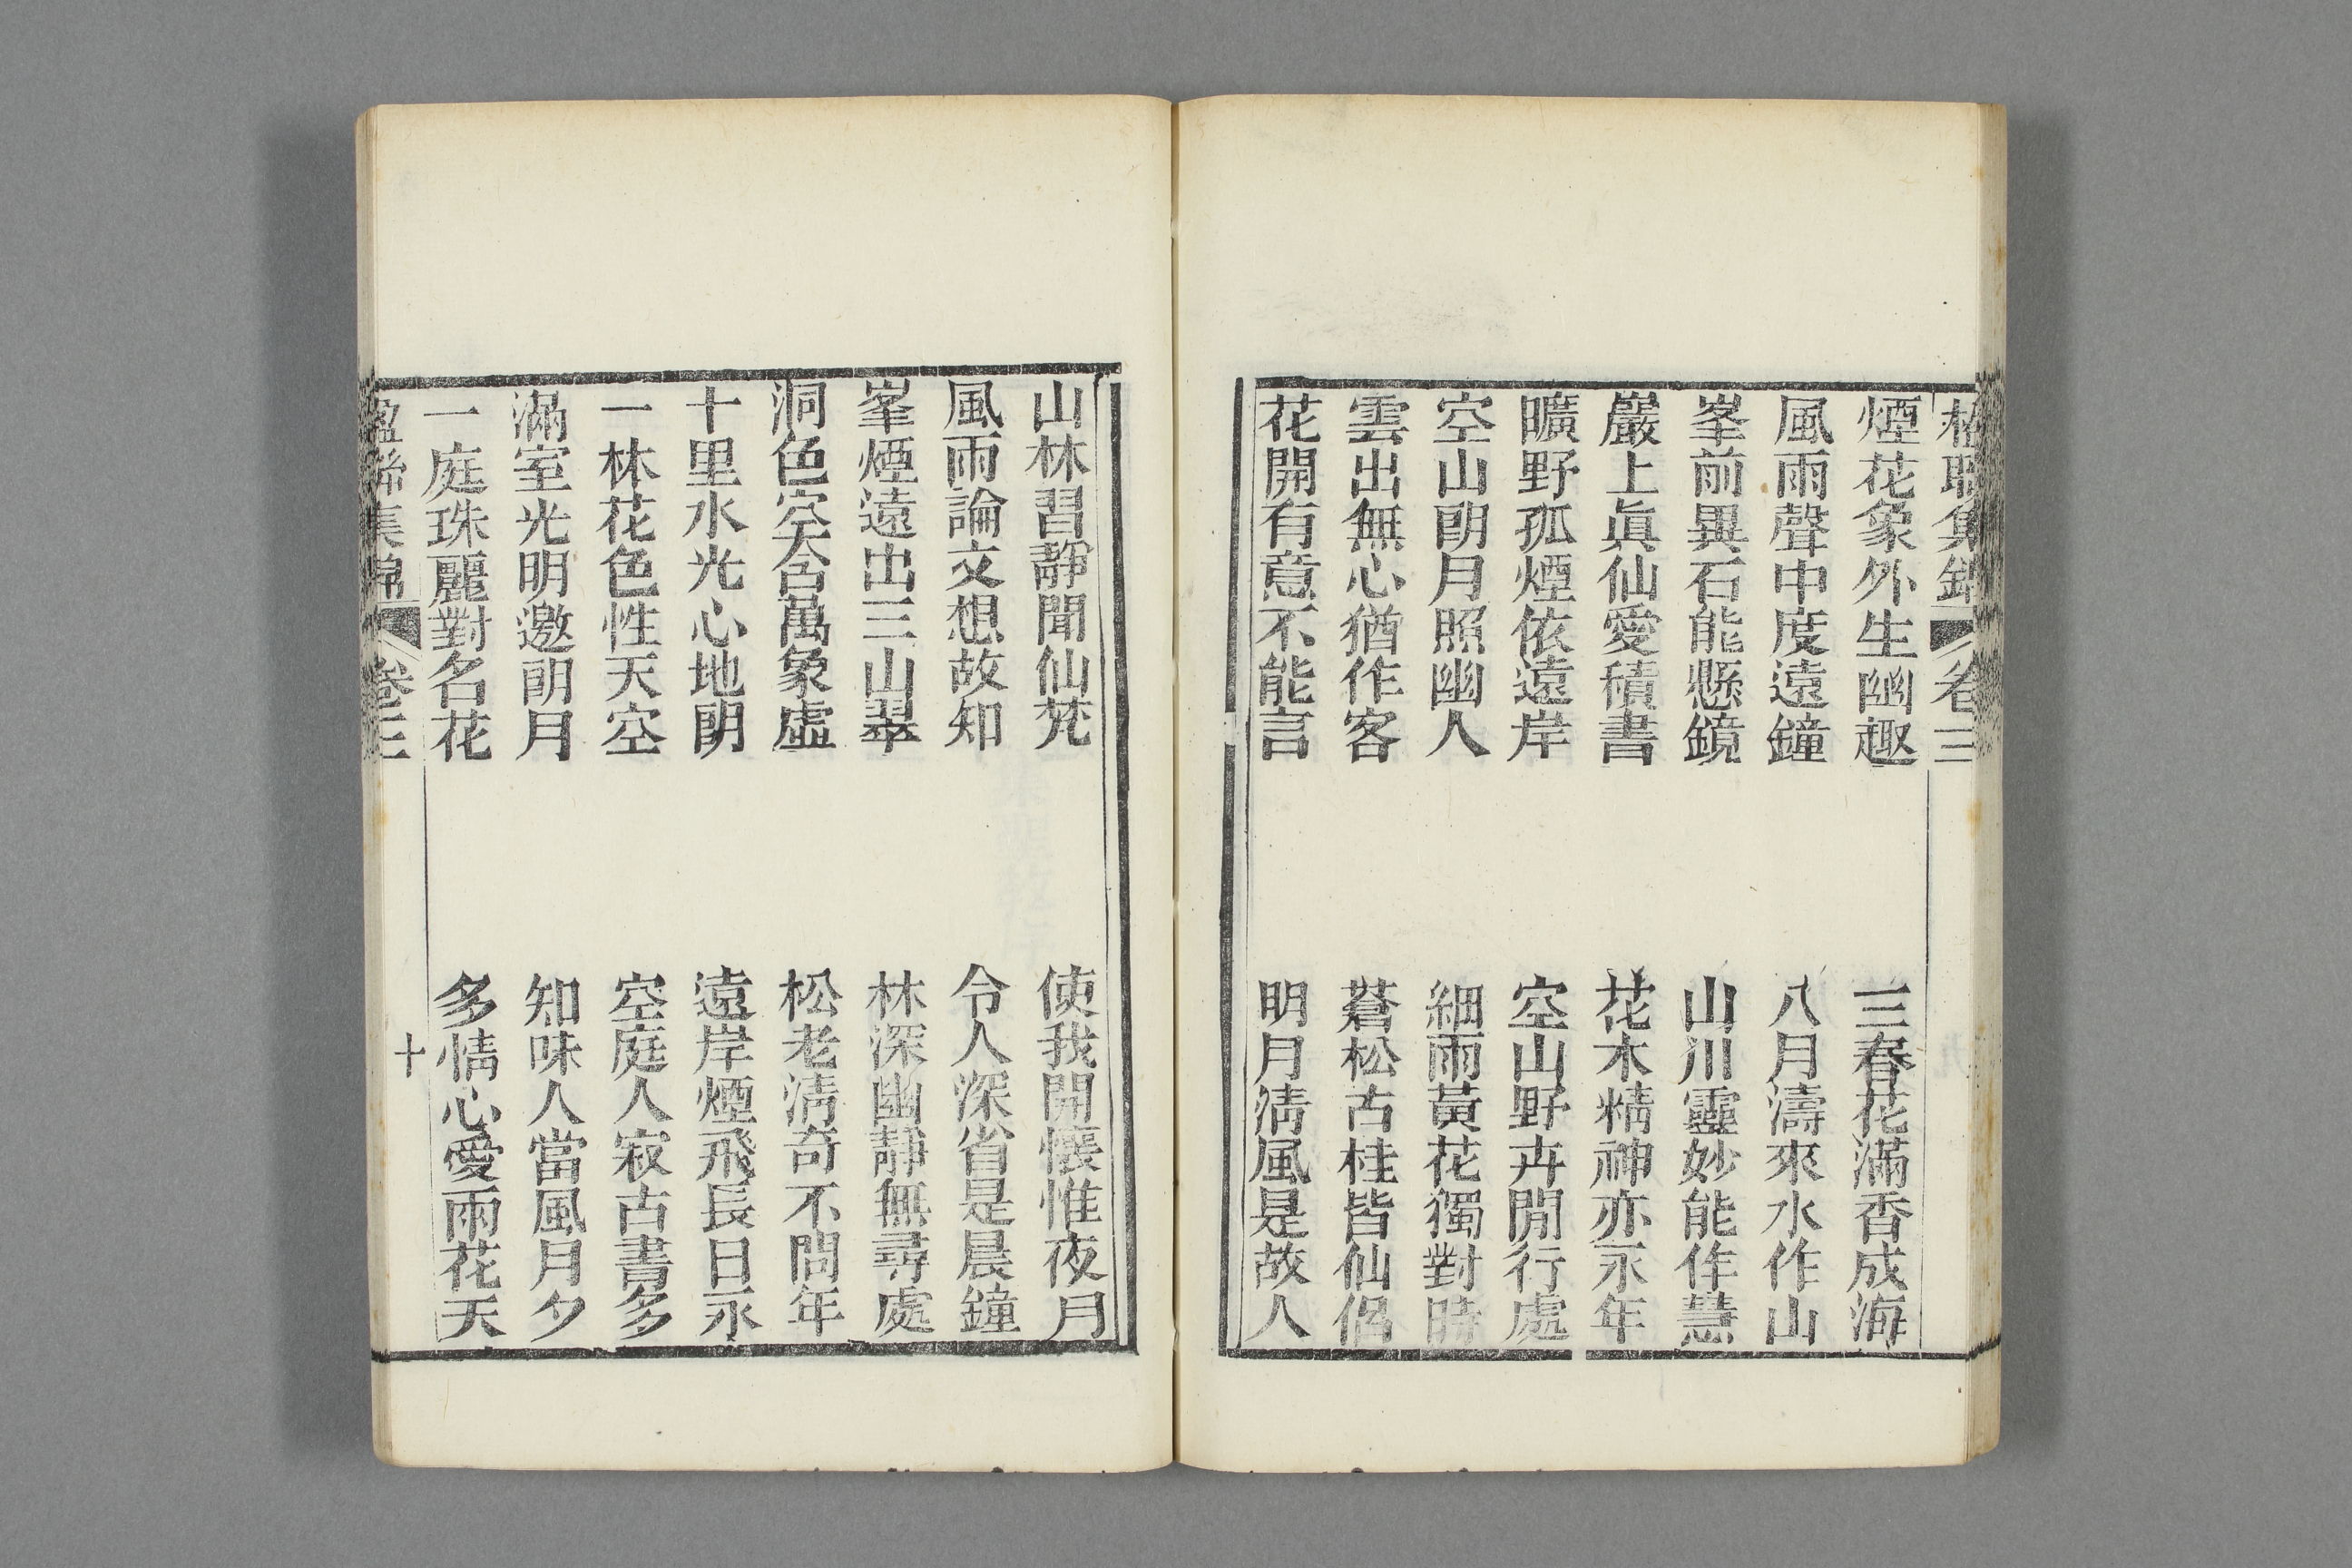 楹聯集錦 卷三
煙花象外生幽趣 三春花滿香成海
風雨聲中度遠鐘 八月濤來水作山
峯前異石能懸鏡 山川靈妙能作慧
巖上眞仙愛積書 花木精神亦永年
曠野孤煙依遠岸 空山野卉閒行處
空山朗月照幽人 細雨黃花獨對時
雲出無心猶作客 蒼松古桂皆仙侶
花開有意不能言 明月淸風是故人
山林習靜聞仙梵 使我開懷惟夜月
風雨論文想故知 令人深省是晨鐘
峯煙遠出三山翠 林深幽靜無尋處
洞色空含萬象虛 松老淸奇不問年
十里水光心地朗 遠岸煙飛長日永
一林花色性天空 空庭人寂古書多
滿室光明邀朗月 知味人當風月夕
一庭珠麗對名花 多情心愛雨花天
楹聯集錦 卷三 十